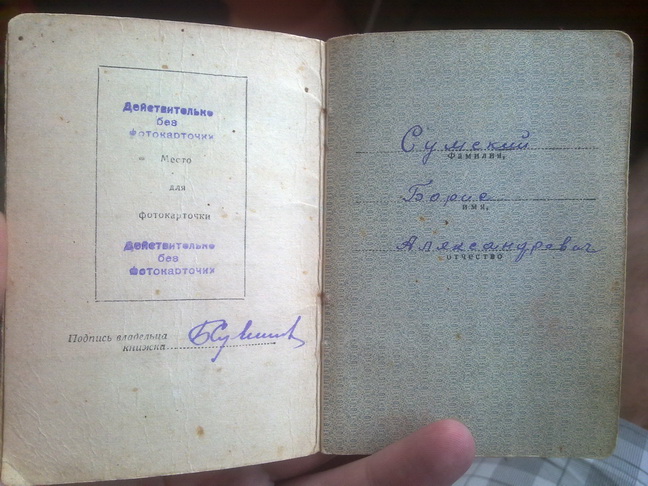 Действительно
без
фотокарточки
Место
для
фотокарточки
Действительно
без
фотокарточки
Подпись владельца
книжки
Сумский
Фамилия,
Борис
имя,
Александрович
отчество